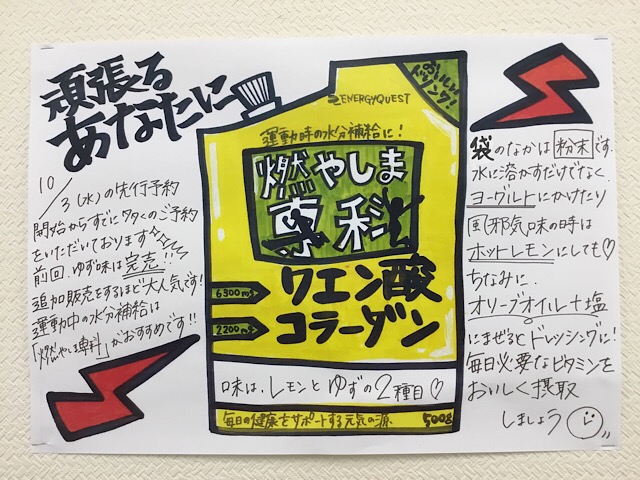 頑張る
あなたに
10/3(水)の先行予約
開始からすでに多くのご予約
をいただいております
前回、ゆず味は完売!!
追加販売をするほど大人気です!
運動中の水分補給は
「燃やしま専科」がおすすめです!!
おいしい
ドリンク!
ENERGYQUEST
運動時の水分補給に!
燃やしま
専科
6300mg
クエン酸
2200mg
コラーゲン
味は、レモンとゆずの2種類♡
毎日の健康をサポートする元気の源
500g
袋のなかは粉末です。
水に溶かすだけでなく、
ヨーグルトにかけたり
風邪気味の時は
ホットレモンにしても♡
ちなみに、
オリーブオイル+塩
にまぜるとドレッシングに!
毎日必要なビタミンを
おいしく摂取
しましょう